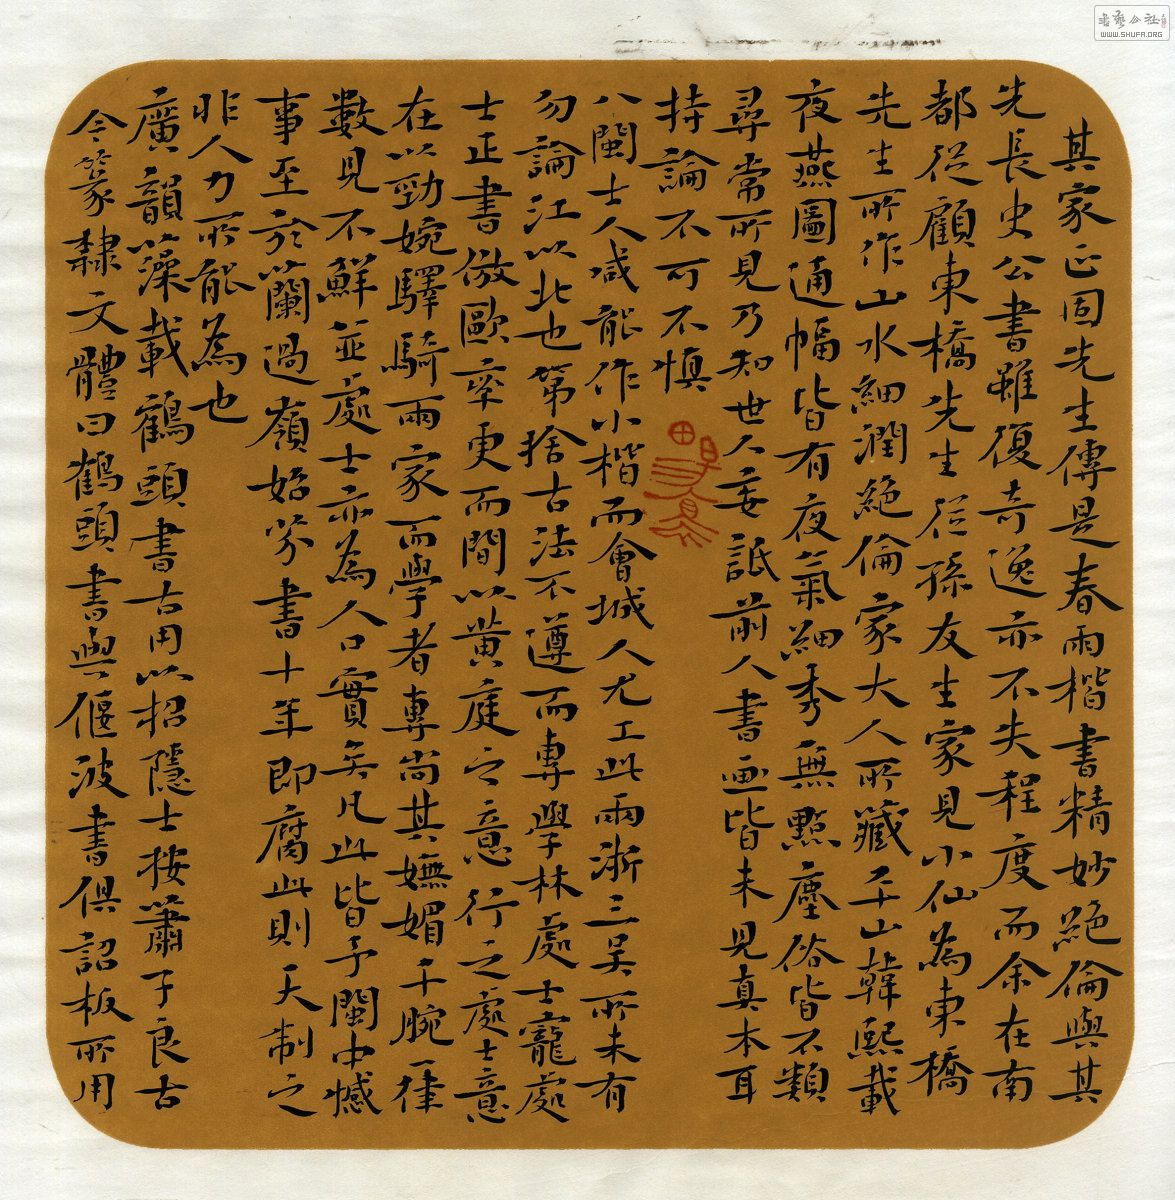 其家正固先生傳是春雨楷書精妙絕倫與其
先長史公書雖復奇逸亦不失程度而余在南
都從顧東橋先生從孫友生家見小仙為東橋
先生所作山水細潤絕倫家大人所藏平山韓熙載
夜燕圖通幅皆有夜氣細秀無點塵俗皆不類
尋常所見乃知世人妄詆前人書画皆未見真本耳
持論不可不慎
八閩士人咸能作小楷而會城人尤工此兩浙三吳所未有
勿論江以北也第捨古法不遵而專學林處士寵處
士正書倣歐率更而間以黃庭之意行之處士意
在以勁婉驛騎兩家而學者專尚其嫵媚千腕一律
數見不鮮並處士亦為人口實矣凡此皆予閩中憾
事至於蘭過嶺始芬書十年即腐此則天制之
非人力所能為也
廣韻藻載鶴頭書古用以招隱士按蕭子良古
今篆隸文體曰鶴頭書與偃波書俱詔板所用
書藝公社
WWW.SHUFA.ORG